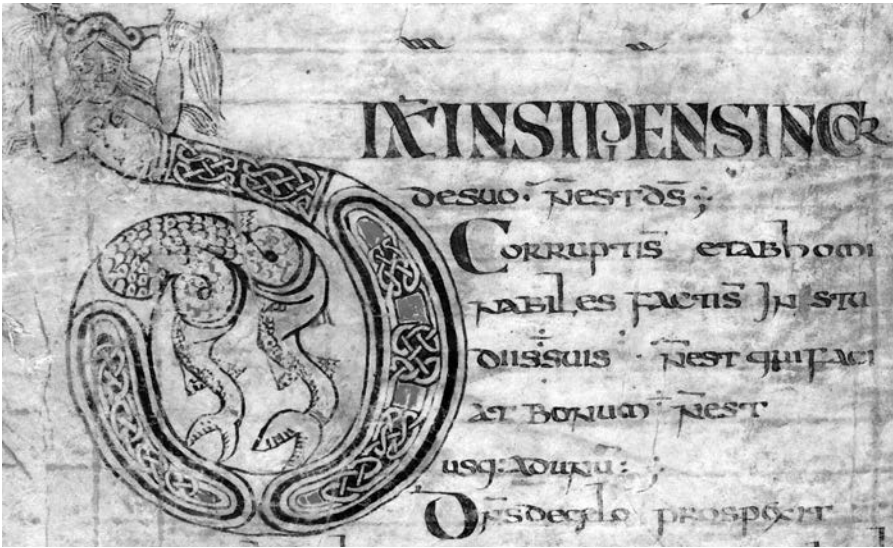 DIX̄INSIPIENSINCOR
desuo· n̄estds̄;
Corruptis̄ etabhomi
nabiles factis̄ In stu
diissuis· n̄est quifaci
at bonum· n̄est
usq: adunū:;
Dn̄sdecelo prospexit